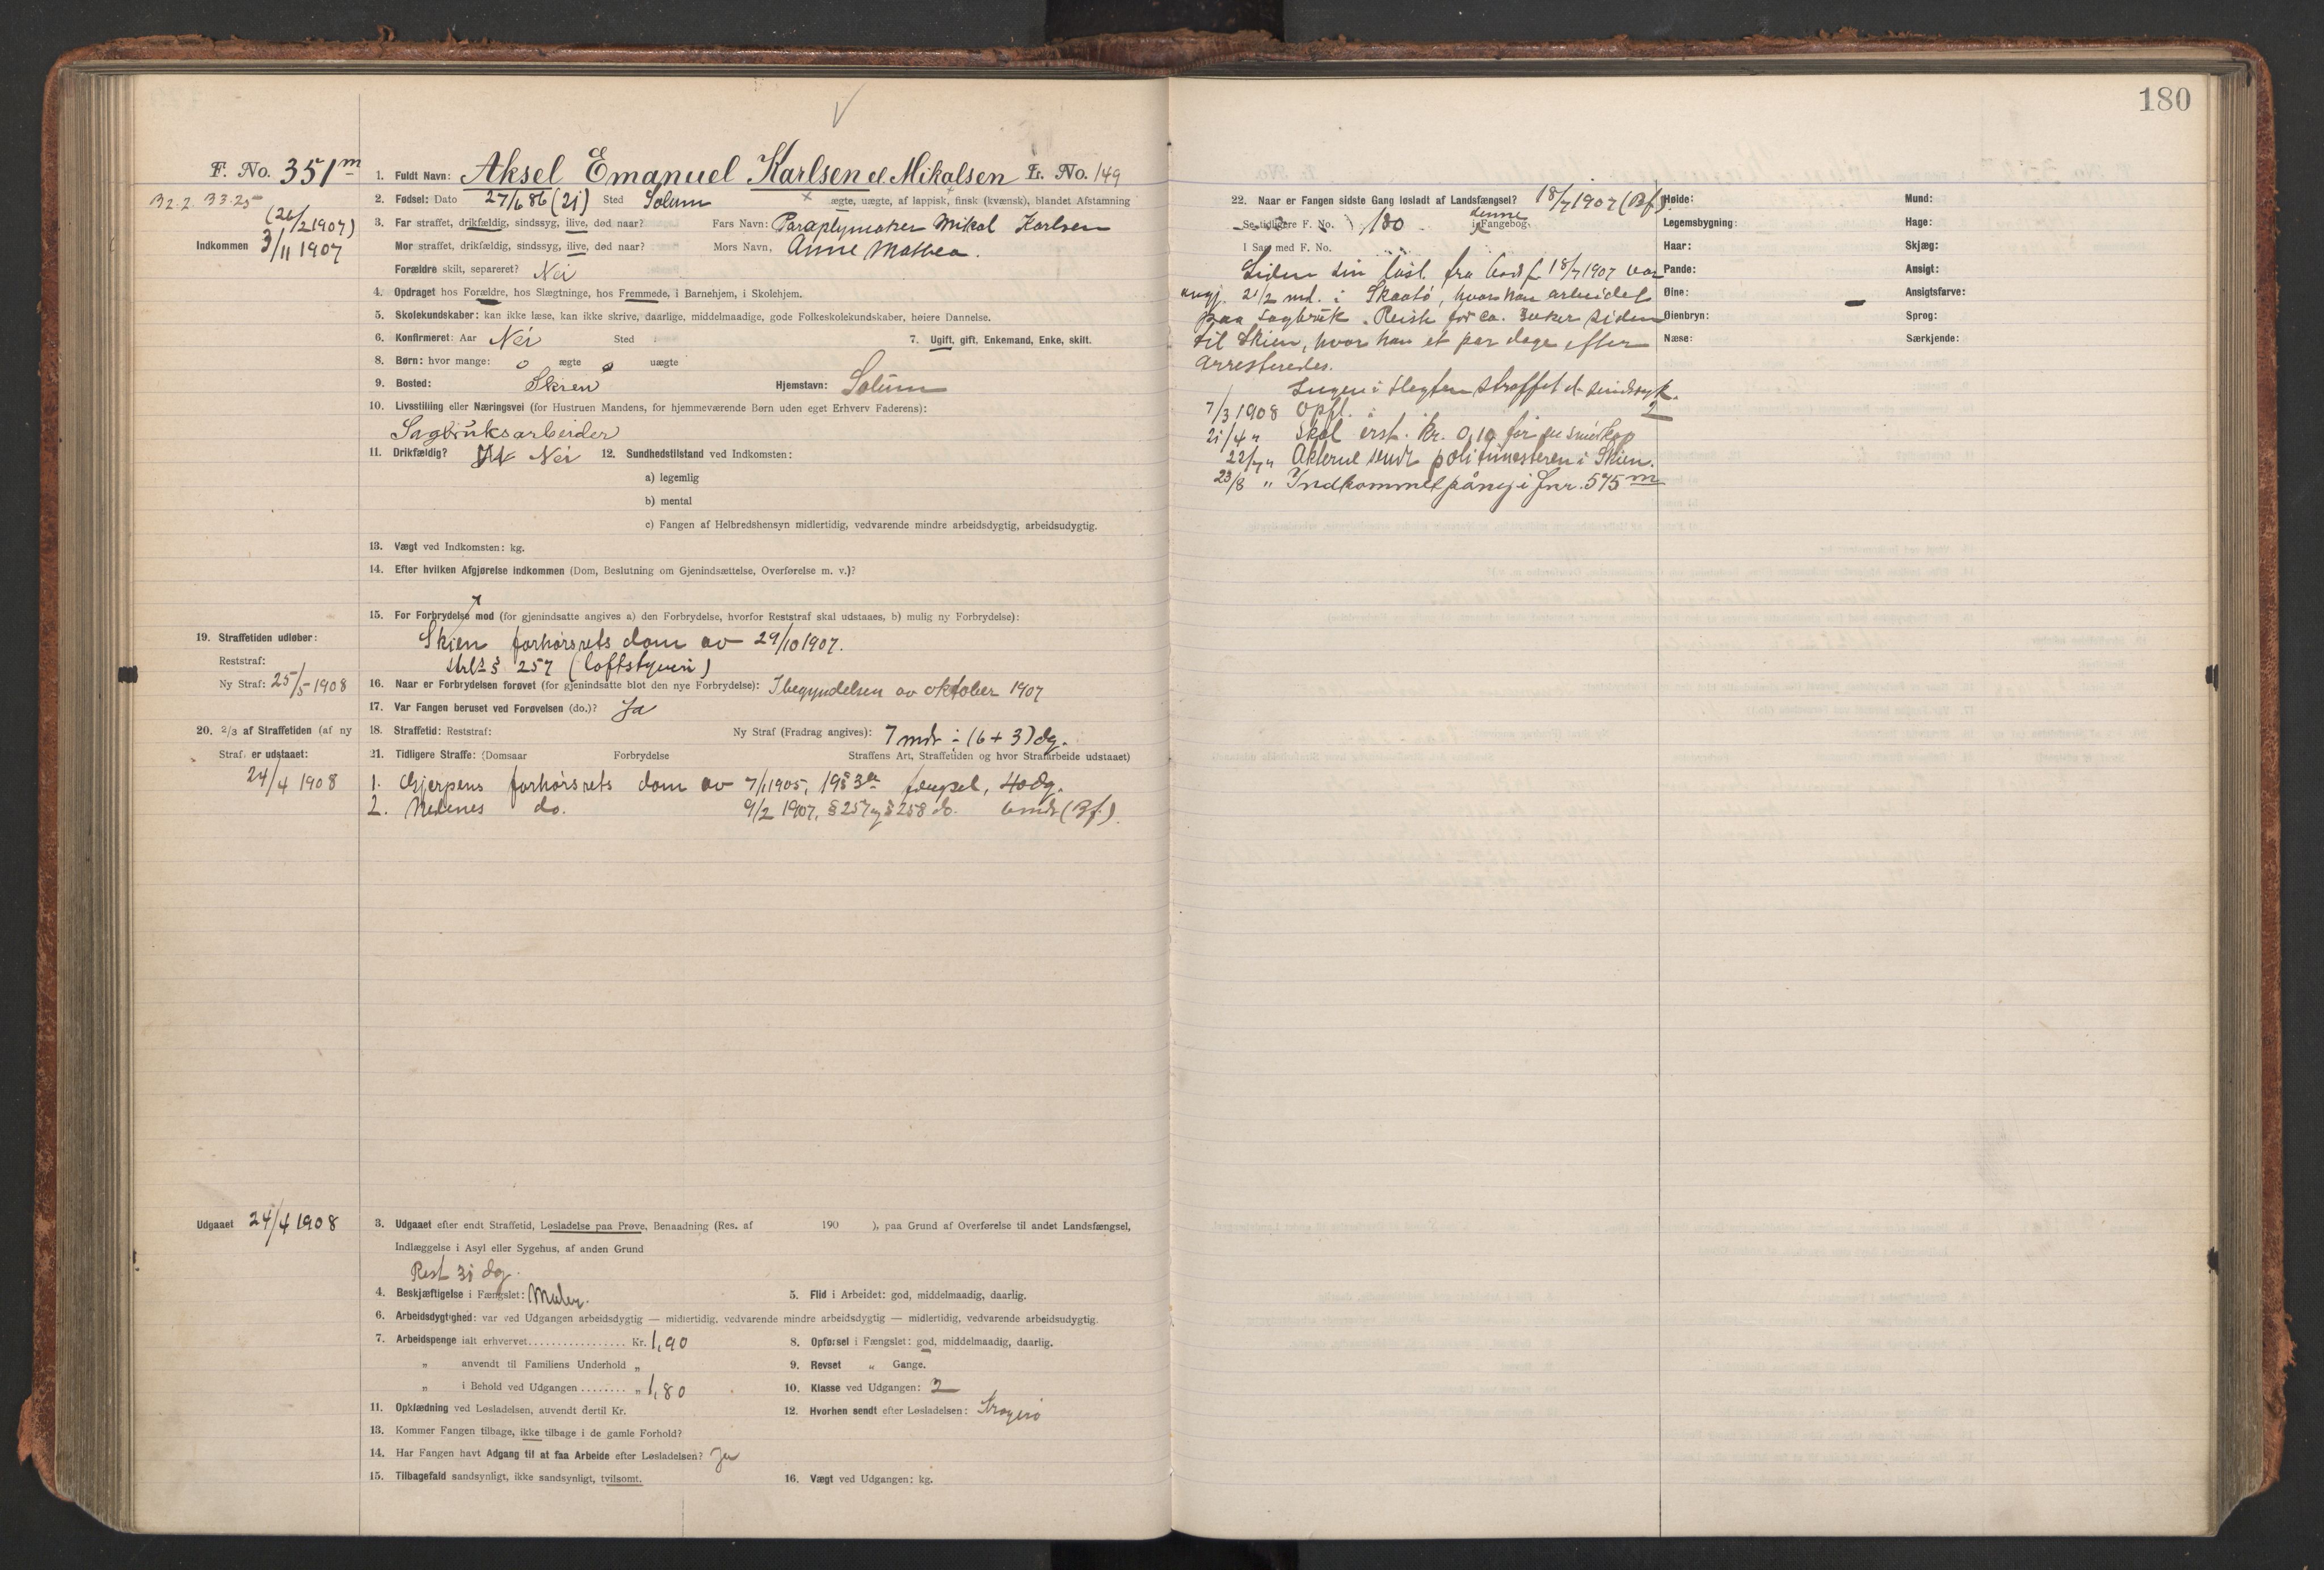 180
F. No. 351 m
1. Fuldt Navn: Aksel Emanuel Karlsen el. Mikalsen L. No. 149
2. Fødsel: Dato 27/6 86 (21) Sted Solum ægte, uægte, af lappisk, finsk (kvænsk), blandet Afstamning
(26/2 1907)
3. Far straffet, drikfældig, sindssyg, ilive, død naar? Fars Navn: Paraplymaker Mikal Karlsen
Indkommen 3/11 1907
Mor straffet, drikfældig, sindssyg, ilive, død naar? Mors Navn, Anne Mathea.
Forældre skilt, separeret? Nei
4. Opdraget hos Forældre, hos Slægtninge, hos Fremmede, i Barnehjem, i Skolehjem.
5. Skolekundskaber: kan ikke læse, kan ikke skrive, daarlige, middelmaadige, gode Folkeskolekundskaber, høiere Dannelse.
6. Konfirmeret: Aar Nei Sted 7. Ugift, gift, Enkemand, Enke, skilt.
8. Børn: hvor mange: 0 ægte 0 uægte
9. Bosted: Skien Hjemstavn: Solum
10. Livsstilling eller Næringsvei (for Hustruen Mandens, for hjemmeværende Børn uden eget Erhverv Faderens):
Sagbruksarbeider
11. Drikfældig? Nei 12. Sundhedstilstand ved Indkomsten:
a) legemlig
b) mental
c) Fangen af Helbredshensyn midlertidig, vedvarende mindre arbeidsdygtig, arbeidsudygtig.
13. Vægt ved Indkomsten: kg.
14. Efter hvilken Afgjørelse indkommen (Dom, Beslutning om Gjenindsættelse, Overførelse m. v.)?
15. For Forbrydelse mod (for gjenindsatte angives a) den Forbrydelse, hvorfor Reststraf skal udstaaes, b) mulig ny Forbrydelse):
19. Straffetiden udløber:
Skien forhørsrets dom av 29/10 1907.
Reststraf:
§ 257 (loftstyveri)
Ny Straf: 25/5 1908
16. Naar er Forbrydelsen forøvet (for gjenindsatte blot den nye Forbrydelse): I begyndelsen av oktober 1907
17. Var Fangen beruset ved Forøvelsen (do.)? Ja
20. 2/3 af Straffetiden (af ny
18. Straffetid: Reststraf: Ny Straf (Fradrag angives): 7 mdr ÷ (6 + 3) dg.
Straf er udstaaet:
21. Tidligere Straffe: (Domsaar Forbrydelse Straffens Art, Straffetiden og hvor Strafarbeide udstaaet)
24/4 1908
1. Gjerpens forhørsrets dom av 7/1 1905, fengsel, 40 dg.
2. Nedenes do. 9/2 1907, § 257 og § 258 do. 6 mdr (Bf.).
Udgaaet 24/4 1908
3. Udgaaet efter endt Straffetid, Løsladelse paa Prøve, Benaadning (Res. af 190 ), paa Grund af Overførelse til andet Landsfængsel,
Indlæggelse i Asyl eller Sygehus, af anden Grund
Rest 31 dg.
4. Beskjæftigelse i Fængslet: Maler. 5. Flid i Arbeidet: god, middelmaadig, daarlig.
6. Arbeidsdygtighed: var ved Udgangen arbeidsdygtig — midlertidig, vedvarende mindre arbeidsdygtig — midlertidig, vedvarende arbeidsudygtig.
7. Arbeidspenge ialt erhvervet................. Kr. 1,90 8. Opførsel i Fængslet: god, middelmaadig, daarlig.
„ anvendt til Familiens Underhold „ 9. Revset „ Gange.
„ i Behold ved Udgangen........ „ 1,80 10. Klasse ved Udgangen: 2
11. Opklædning ved Løsladelsen, anvendt dertil Kr. 12. Hvorhen sendt efter Løsladelsen:
13. Kommer Fangen tilbage, ikke tilbage i de gamle Forhold?
14. Har Fangen havt Adgang til at faa Arbeide efter Løsladelsen? Ja
15. Tilbagefald sandsynligt, ikke sandsynligt, tvilsomt. 16. Vægt ved Udgangen: kg.
22. Naar er Fangen sidste Gang løsladt af Landsfængsel? 18/7 1907 (Bf.)
Se tidligere F. No. 180 i denne Fangebog.
I Sag med F. No.
Siden sin løsl. fra 18/7 1907 var
angj. 2 1/2 md. i Skaatø, hvor han arbeidet
paa Sagbruk. Reiste for ca. 3 uker siden
til Skien, hvor han et par dage efter
arresteredes.
Ingen i slegten straffet el. sindssyk.
7/3 1908 Opfl. 2
21/4 „ Skal erst. kr. 0,10 for
22/4 „ Akterne sendt politimesteren i Skien.
23/8 „ Indkommet påny i fnr. 575 m
Høide: Mund:
Legemsbygning: Hage:
Haar: Skjæg:
Pande: Ansigt:
Øine: Ansigtsfarve:
Øienbryn: Sprog:
Næse: Særkjende: